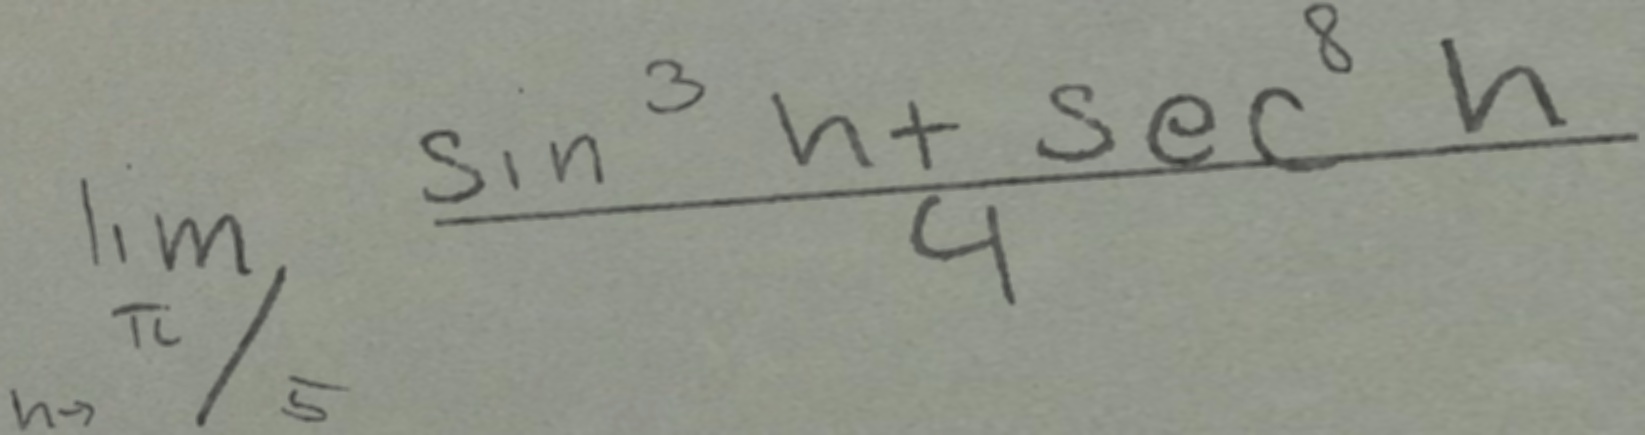 lim h→ π/5 (sin³ h + sec⁸ h)/4